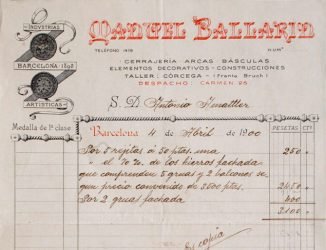 INDVSTRIAS
BARCELONA 1898
ARTISTICAS
Medalla de 1ª clase
MANUEL BALLARIN
TELÉFONO 1419
CERRAJERÍA ARCAS BÁSCULAS
ELEMENTOS DECORATIVOS - CONSTRUCCIONES
TALLER: CÓRCEGA - (frente Bruch)
DESPACHO: CARMEN 25
S. D. Antonio Amattller
Barcelona 4 de Abril de 1900
PESETAS CTS
Por 5 rejitas á 50 ptas. una 250
" el 70 % de los hierros fachada
que comprenden 5 gruas y 2 balcones se
gun precio convenido de 3500 ptas. 2450
Por 2 gruas fachada 400
3100
Es copia